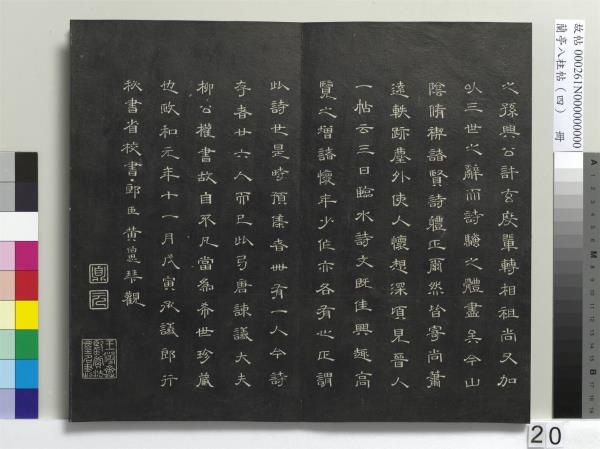 之孫興公許玄度輩轉相祖尚又加
以三世之辭而詩騷之體盡矣今山
陰脩禊諸賢詩體正爾然皆寄尚蕭
遠軼跡塵外使人懷想深頃見晉人
一帖云三日臨水詩文既佳興趣高
覽之增諸懷年少作亦各有心正謂
此詩也是時預集者卌有一人今詩
存者廿六人而已此乃唐諫議大夫
柳公權書故自不凡當為希世珍藏
也政和元年十一月戊寅承議郎行
秘書省校書郎臣黃伯思觀
故帖 000261N000000000
蘭亭八柱帖(四) 冊
20